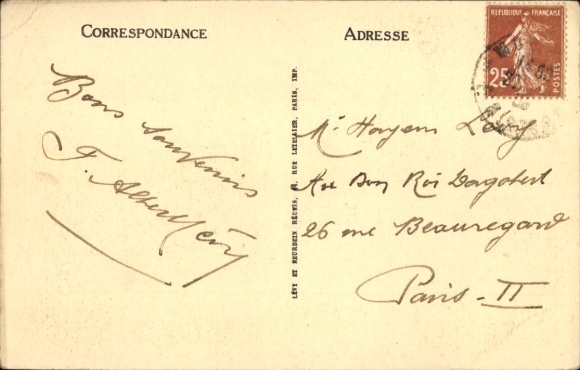 CORRESPONDANCE
ADRESSE
RÉPUBLIQUE FRANÇAISE
25
POSTES
Bons souvenirs
F. Albert Lévy
Mr Hayem Lévy
Au Bon Roi Dagobert
26 rue Beauregard
Paris - II
LÉVY ET NEURDEIN RÉUNIS, RUE LETELLIER, PARIS, IMP.